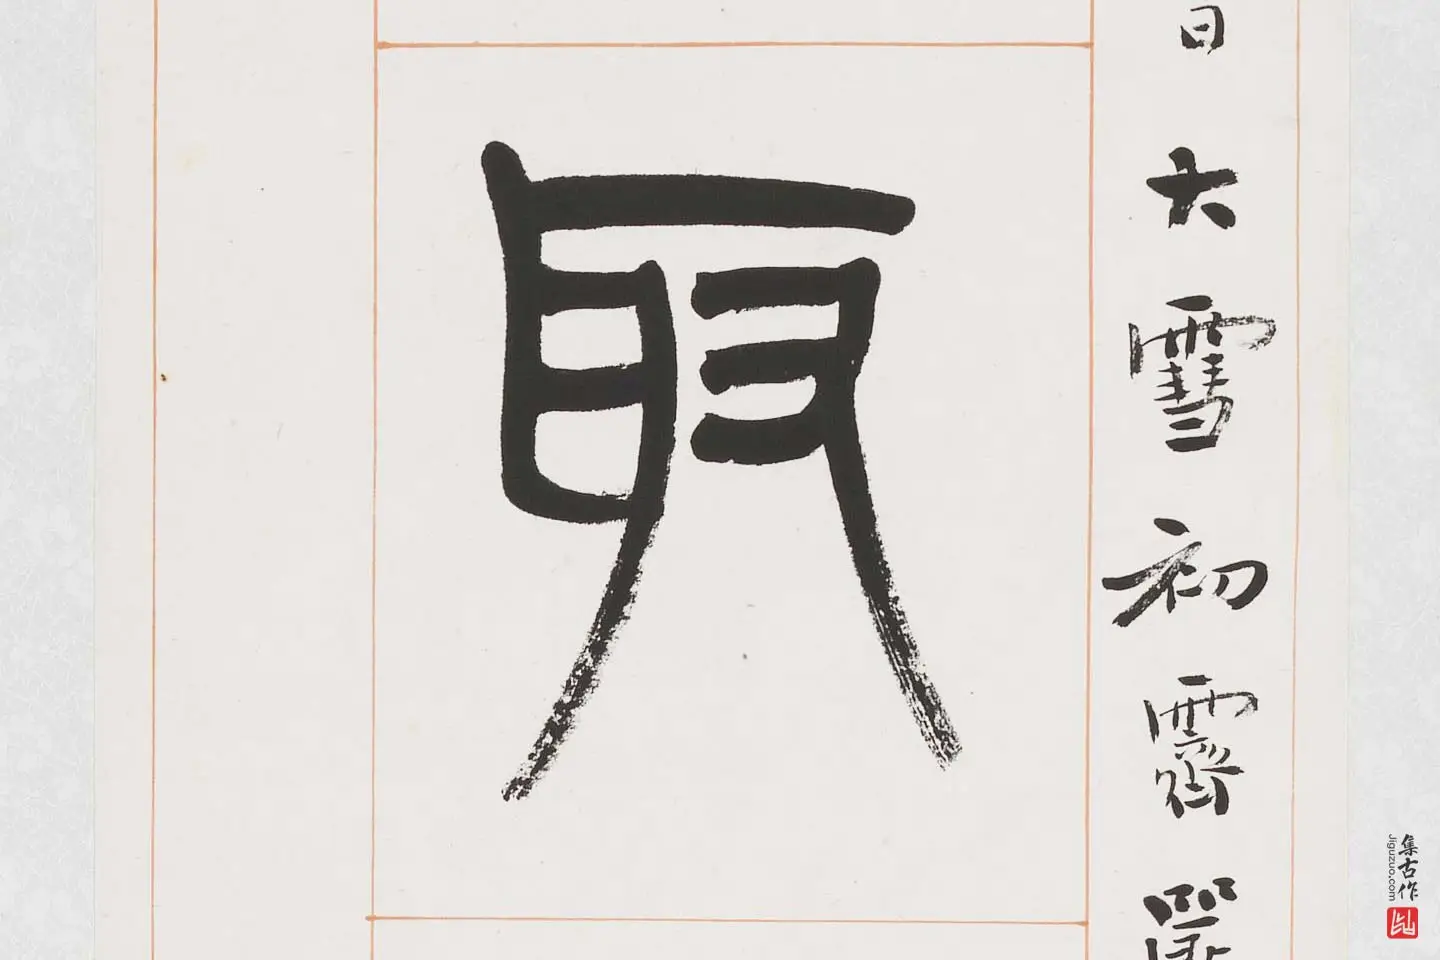 日大雪初霽
取
集古作
jiguzuo.com